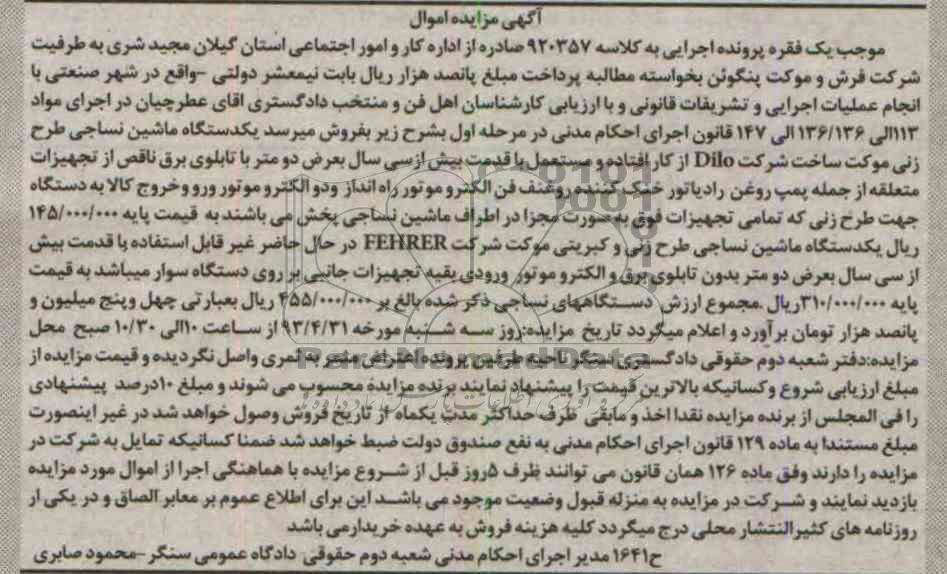 آگهی مزایده اموال
موجب یک فقره پرونده اجرایی به کلاسه ۹۲۰۳۵۷ صادره از اداره کار و امور اجتماعی استان گیلان مجید شری به طرفیت
شرکت فرش و موکت پنگوئن بخواسته مطالبه پرداخت مبلغ پانصد هزار ریال بابت نیمعشر دولتی -واقع در شهر صنعتی با
انجام عملیات اجرایی و تشریفات قانونی و با ارزیابی کارشناسان اهل فن و منتخب دادگستری اقای عطرچیان در اجرای مواد
۱۱۳الی ۱۳۶/۱۳۶ الی ۱۴۷ قانون اجرای احکام مدنی در مرحله اول بشرح زیر بفروش میرسد یکدستگاه ماشین نساجی طرح
زنی موکت ساخت شرکت Dilo از کار افتاده و مستعمل با قدمت بیش ازسی سال بعرض دو متر با تابلوی برق ناقص از تجهیزات
متعلقه از جمله پمپ روغن رادیاتور خنک کننده روغنف فن الکترو موتور راه انداز ودو الکترو موتور ورو وخروج کالا به دستگاه
جهت طرح زنی که تمامی تجهیزات فوق به صورت مجزا در اطراف ماشین نساجی پخش می باشند به قیمت پایه ۱۴۵/۰۰۰/۰۰۰
ریال یکدستگاه ماشین نساجی طرح زنی و کبریتی موکت شرکت FEHRER در حال حاضر غیر قابل استفاده با قدمت بیش
از سی سال بعرض دو متر بدون تابلوی برق و الکترو موتور ورودی بقیه تجهیزات جانبی بر روی دستگاه سوار میباشد به قیمت
پایه ۳۱۰/۰۰۰/۰۰۰ریال .مجموع ارزش دستگاههای نساجی ذکر شده بالغ بر ۴۵۵/۰۰۰/۰۰۰ ریال بعبارتی چهل وپنج میلیون و
پانصد هزار تومان برآورد و اعلام میگردد تاریخ مزایده:روز سه شنبه مورخه ۹۳/۴/۳۱ از ساعت ۱۰الی ۱۰/۳۰ صبح محل
مزایده:دفتر شعبه دوم حقوقی دادگستری سنگر ناحیه طرفین پرونده اعتراض مثمر به ثمری واصل نگردیده و قیمت مزایده از
مبلغ ارزیابی شروع وکسانیکه بالاترین قیمت را پیشنهاد نمایند برنده مزایده محسوب می شوند و مبلغ ۱۰درصد پیشنهادی
را فی المجلس از برنده مزایده نقدا اخذ و مابقی ظرف حداکثر مدت یکماه از تاریخ فروش وصول خواهد شد در غیر اینصورت
مبلغ مستندا به ماده ۱۲۹ قانون اجرای احکام مدنی به نفع صندوق دولت ضبط خواهد شد ضمنا کسانیکه تمایل به شرکت در
مزایده را دارند وفق ماده ۱۲۶ همان قانون می توانند ظرف ۵روز قبل از شروع مزایده با هماهنگی اجرا از اموال مورد مزایده
بازدید نمایند و شرکت در مزایده به منزله قبول وضعیت موجود می باشد این برای اطلاع عموم بر معابر الصاق و در یکی از
روزنامه های کثیرالنتشار محلی درج میگردد کلیه هزینه فروش به عهده خریدارمی باشد
ح۱۶۴۱ مدیر اجرای احکام مدنی شعبه دوم حقوقی دادگاه عمومی سنگر -محمود صابری